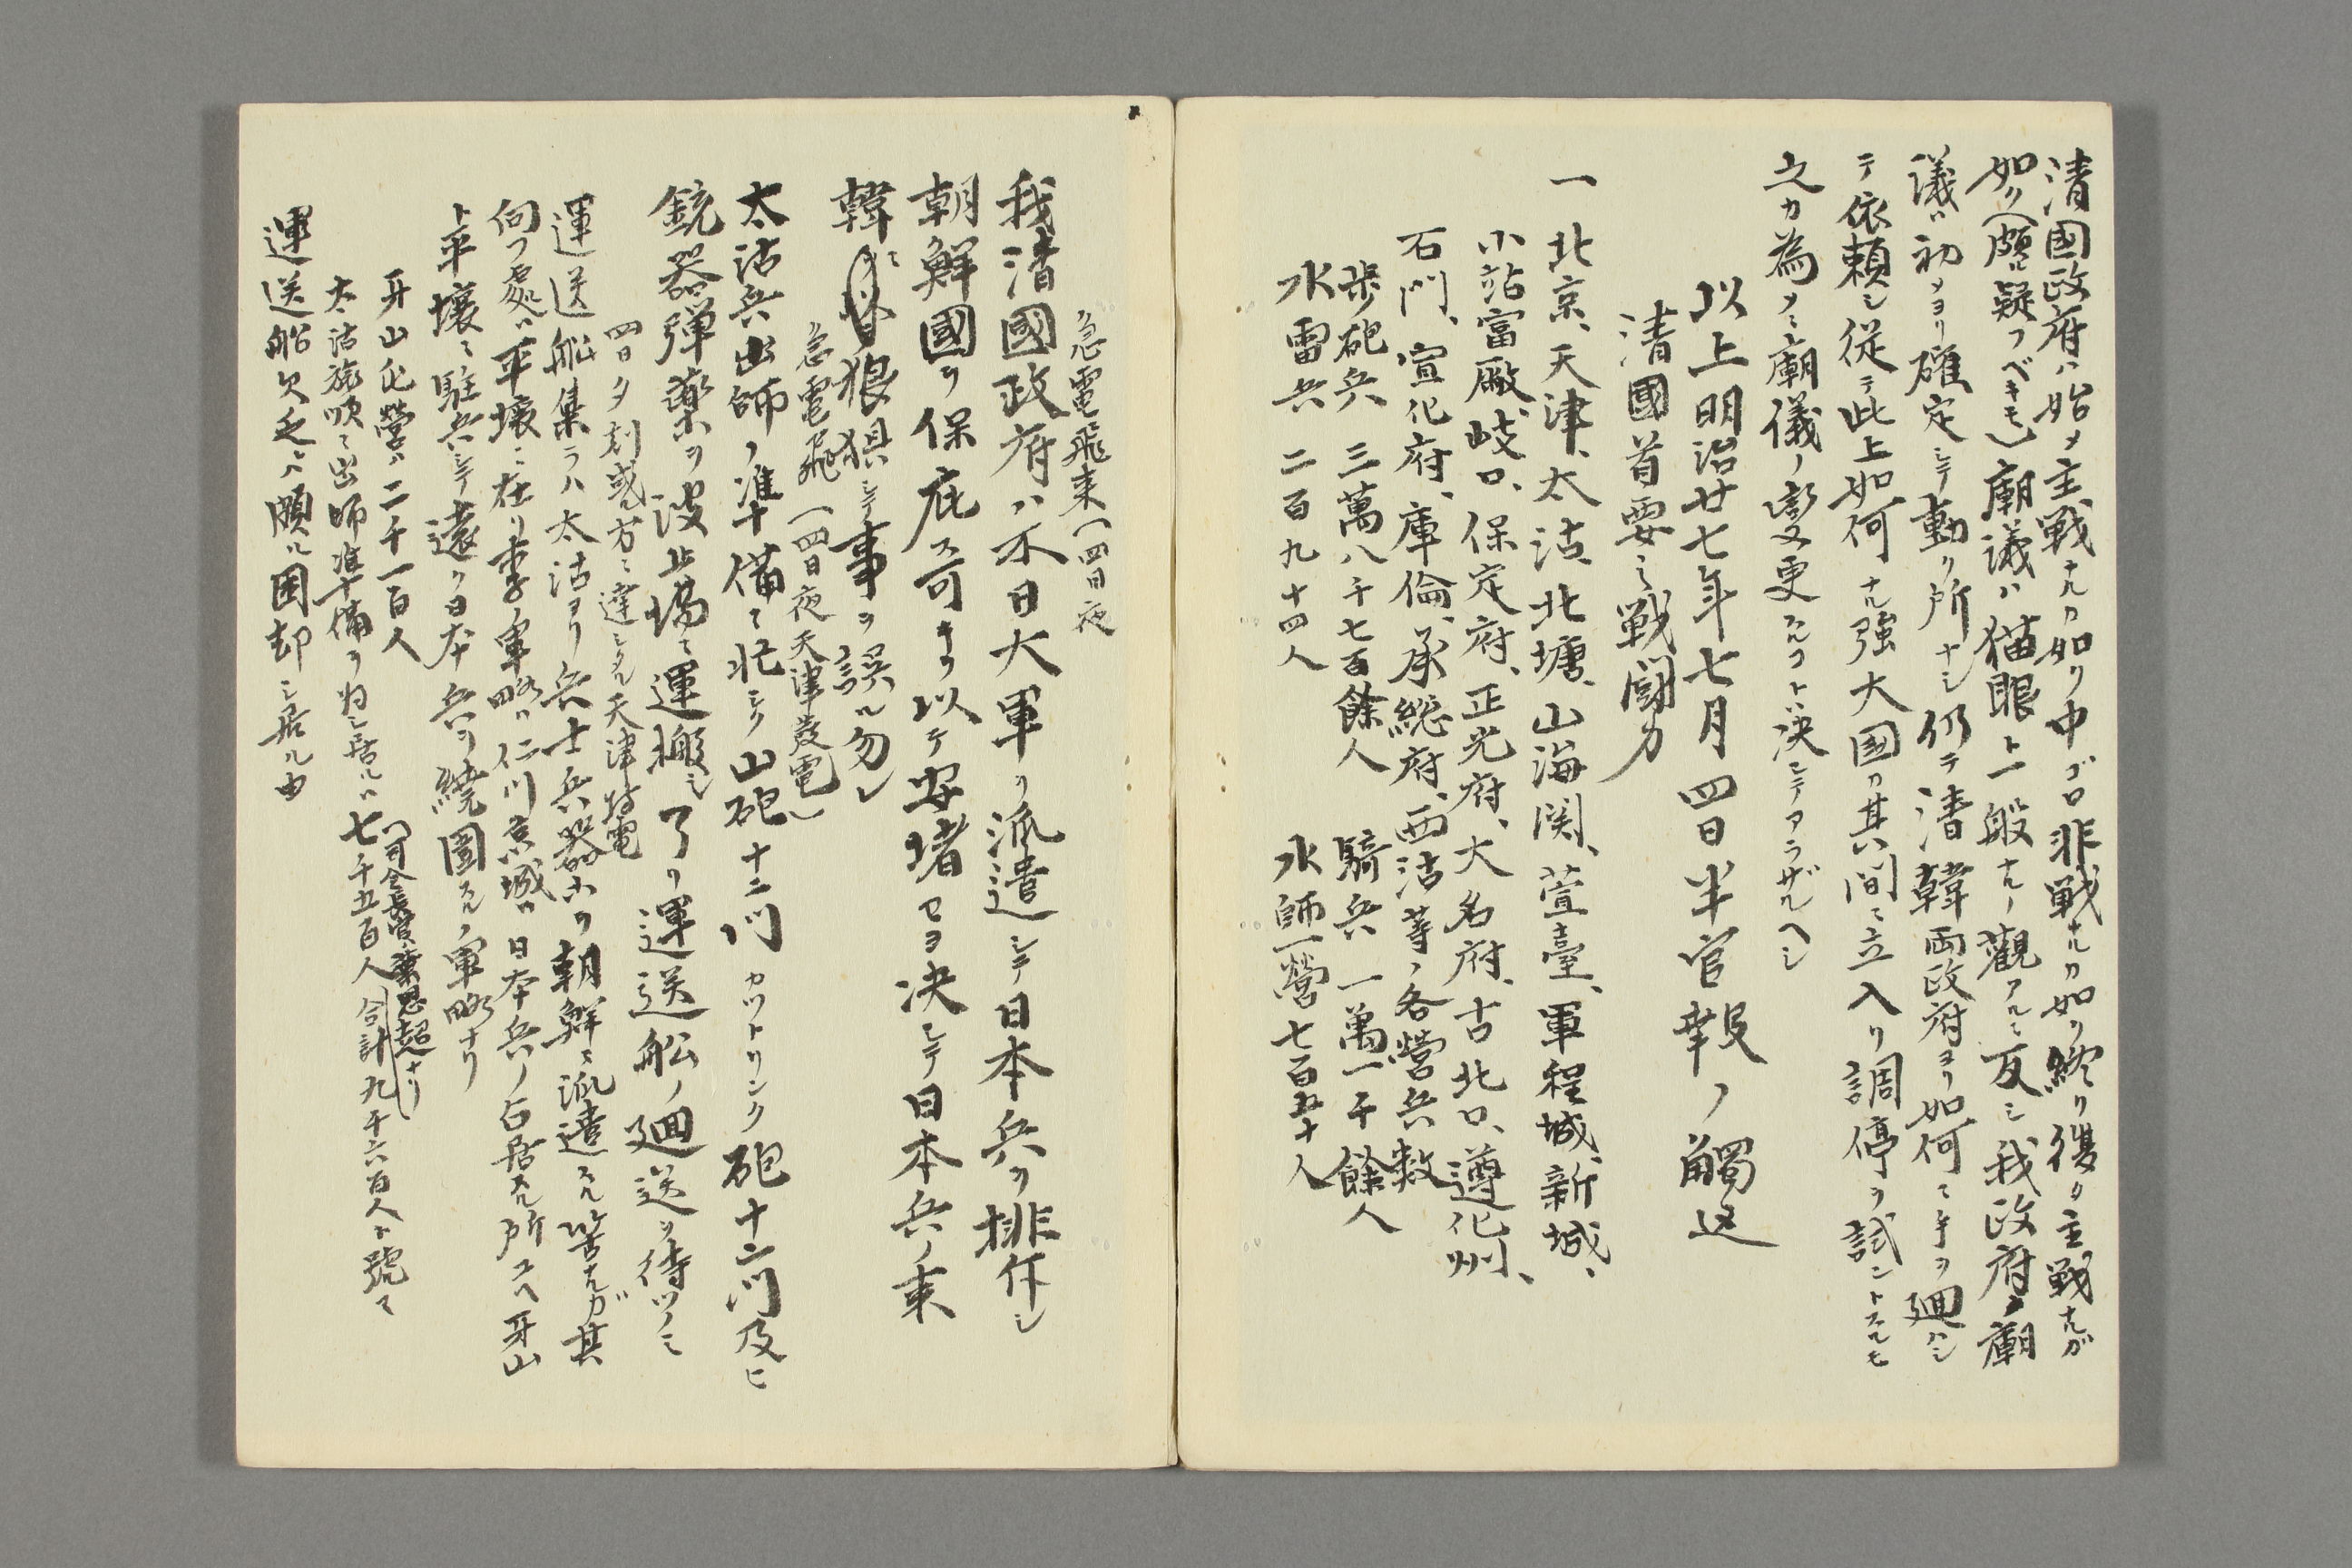 清國政府ハ始メ主戦ナルカ如ク中ゴロ非戦ナルカ如ク終リ復タ主戦ナルガ
如ク(頗ル疑フベキモ)廟議ハ猫眼ト一般ナルノ觀アルニ反シ我政府ノ廟
議ハ初メヨリ確定シテ動ク所ナシ仍テ清韓両政府ヨリ如何ニ手ヲ廻ハシ
テ依頼シ従テ此上如何ナル強大国カ其ノ間ニ立入リ調停ヲ試ントスルモ
之カ為メニ廟儀ノ變更スルコトハ決シテアラザルヘシ
以上明治廿七年七月四日半官報ノ觸込
清國首要之戦鬪力
一北京、天津、太沽、北塘、山海関、萱臺、軍程城、新城、
小站富厰、岐口、保定府、正光府、大名府、古北口、遵化州、
石門、宣化府、庫倫、承総府、西沽等ノ各營兵数
歩砲兵 三萬八千七百餘人 騎兵 一萬一千餘人
水雷兵 二百九十四人 水師一營七百五十人
急電飛来(四日夜
我清國政府ハ不日大軍ヲ派遣シテ日本兵ヲ排斥シ
朝鮮國ヲ保庇ス可キヲ以テ安堵セヨ決シテ日本兵ノ来
韓ニ狼狽シテ事ヲ誤ル勿レ
急電飛(四日夜天津發電)
太沽兵出師ノ準備ニ忙シク山砲十二門カツトリンク砲十六門及ヒ
銃器弾薬ヲ波止場ニ運搬シ了リ運送舩ノ廻送ヲ待ツノミ
四日夕刻或ル方ニ達シタル天津特電
運送舩集ラハ太沽ヨリ兵士兵器ホヲ朝鮮ニ派遣スル筈ナルガ其
向フ處ハ平壌ニ在リ李ノ軍略ハ仁川京城ハ日本兵ノ占居スル所ユヘ牙山
ト平壌ニ駐兵シテ遠ク日本兵ヲ繞圍スルノ軍略ナリ
牙山屯營ハ二千一百人(司令長官ハ葉思超ナリ)
太沽旅順ニ出師準備ヲ為シ居ルハ七千五百人合計九千六百人ト號ス
運送船欠乏ニハ頗ル困却シ居ル由